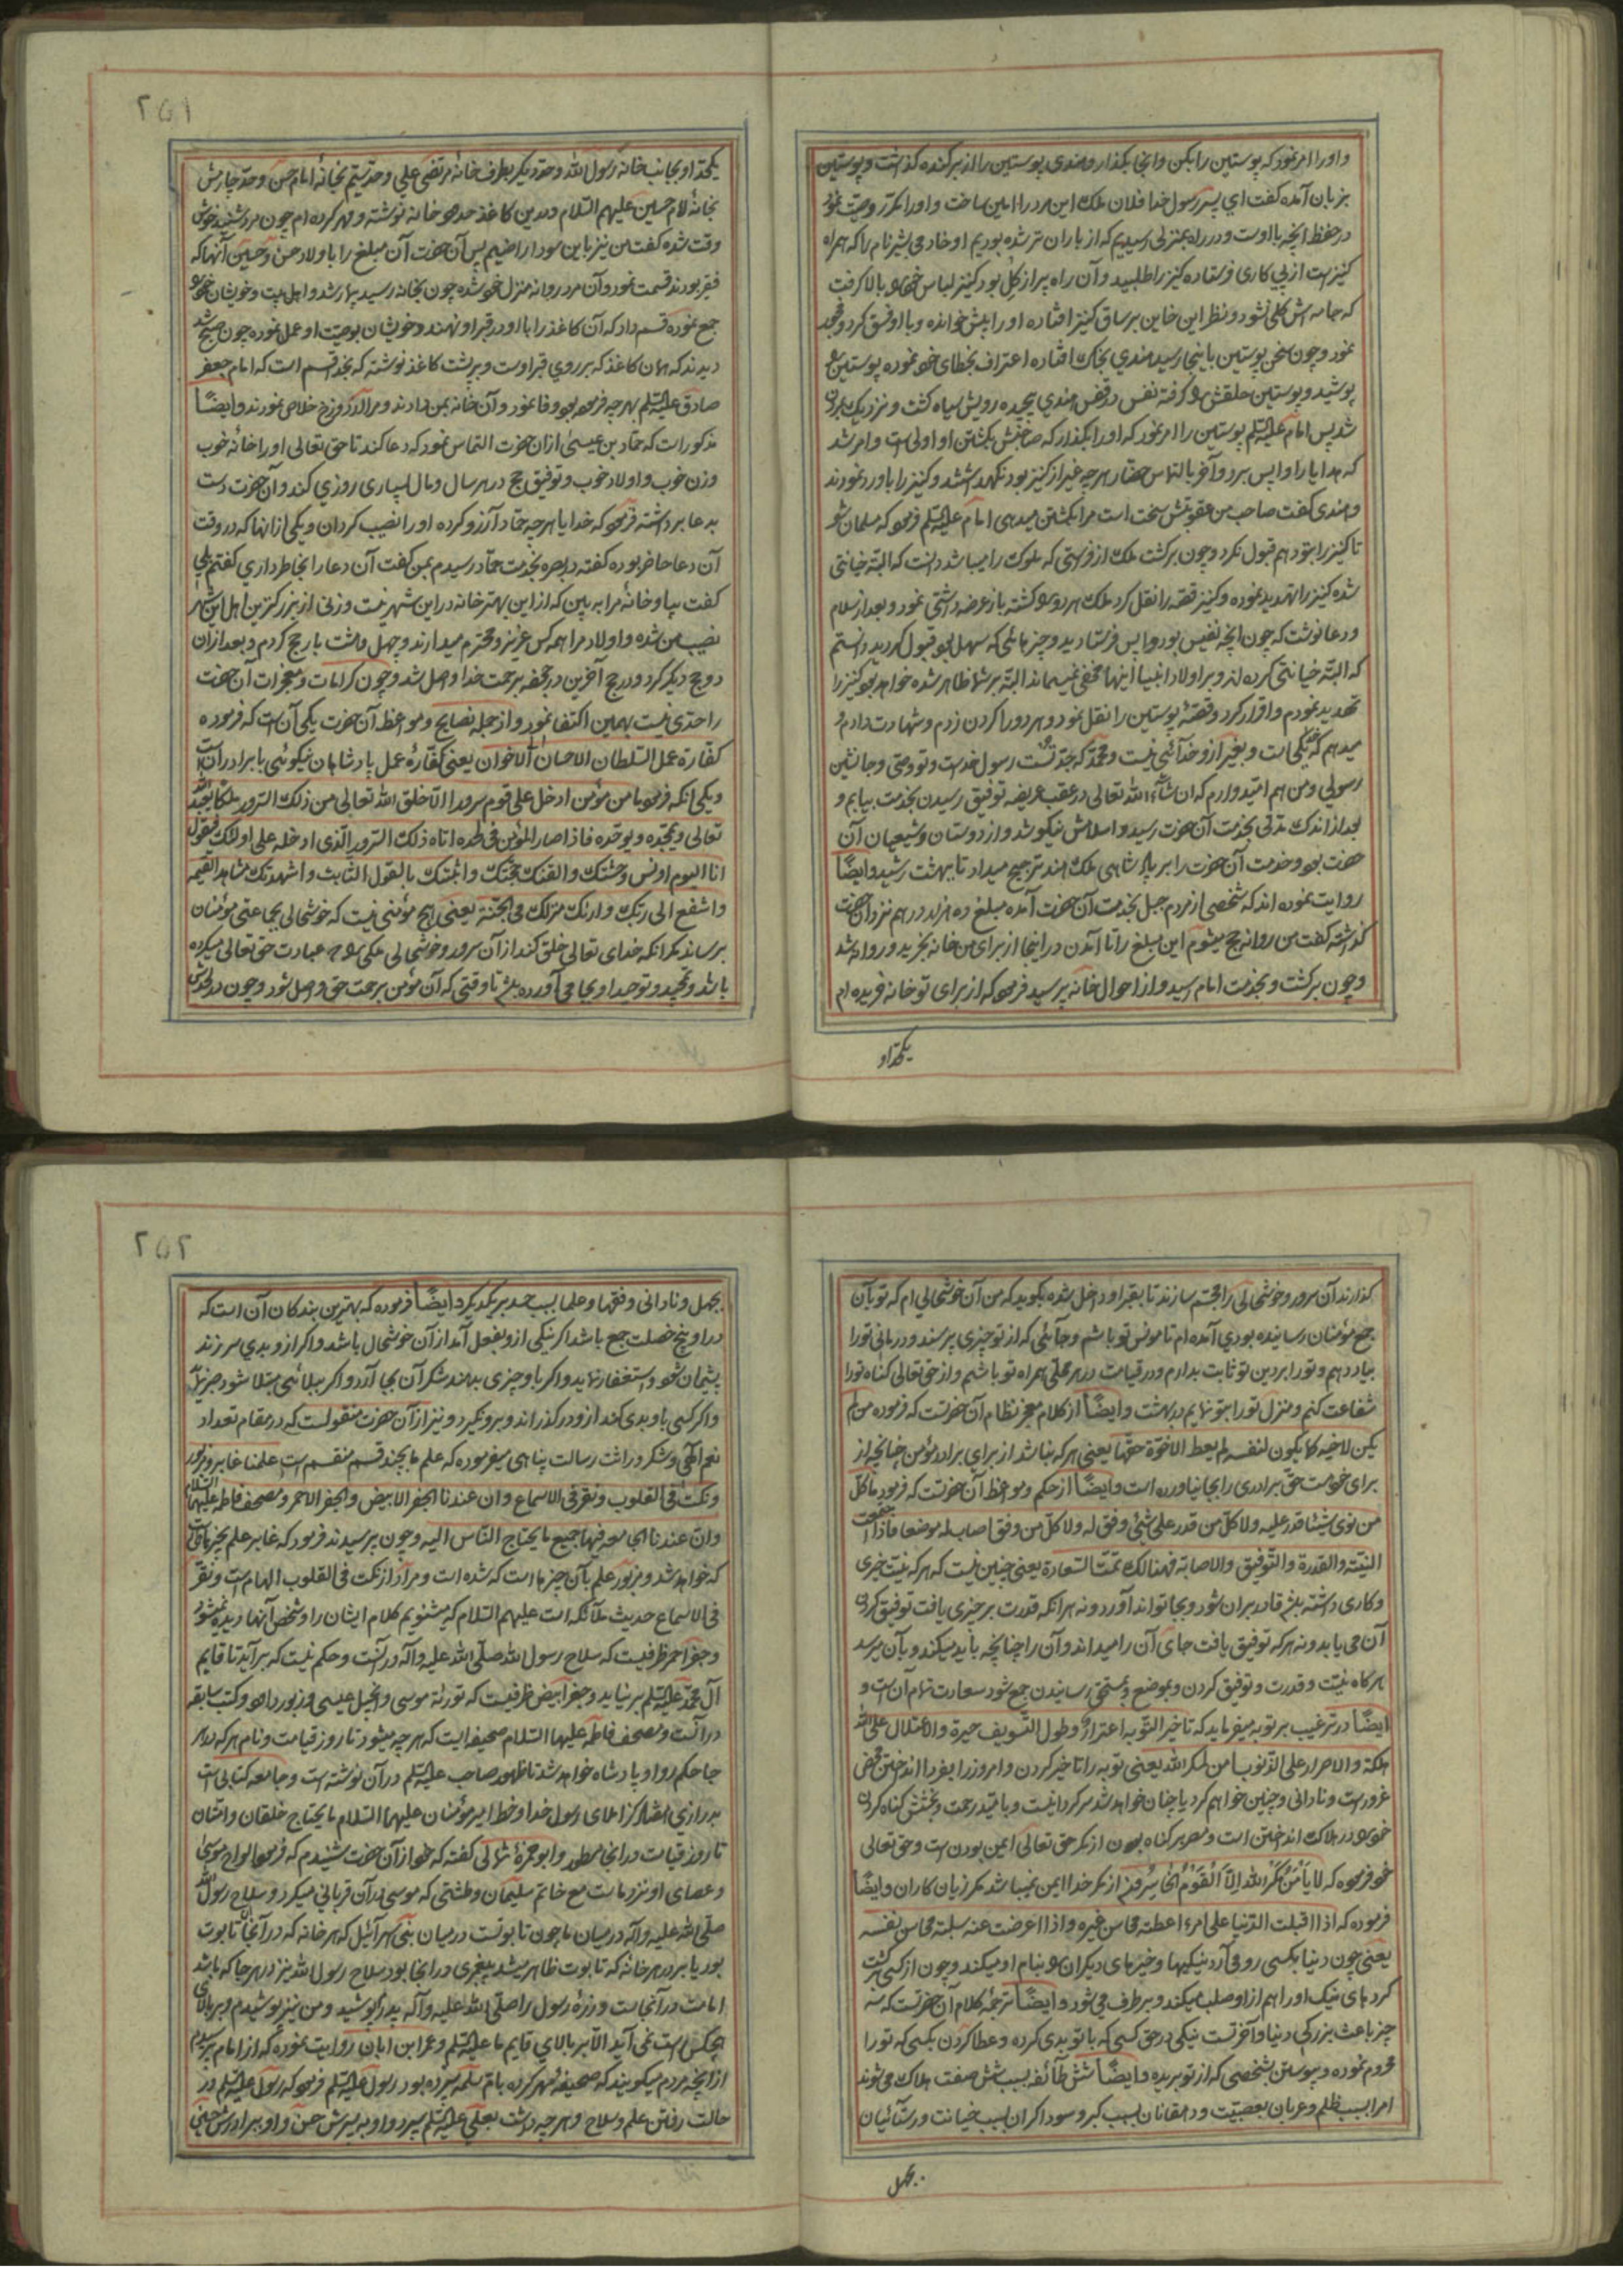 و او را امر نمود که پوستین را بکن و اینجا بگذار و هندی پوستین را از بر کنده گذاشت و پوستین
بزبان آمده گفت ای پسر رسول خدا فلان ملک این مرد را امین ساخت و او را مکرر وصیت نمود
در حفظ آنچه با اوست و در راه بمنزلی رسیدیم که از باران تر شده بودیم او خادمی بشیر نام را که همراه
کنیز است از پی کاری فرستاده کنیز را طلبید و آن راه پر از گل بود کنیز لباس خود بالا گرفت
که جامه اش گلی نشود و نظر این خاین بر ساق کنیز افتاده او را پیش خوانده و با او فسق کرد و فجور
نمود و چون سخن پوستین باینجا رسید هندی بخاک افتاده اعتراف بخطای خود نموده پوستین
پوشید و پوستین حلقش گرفته نفس در قفس هندی پیچیده رویش سیاه گشت و نزدیک بمردن
شد پس امام علیه السلم پوستین را امر نمود که او را بگذار که صاحبش بکشتن او اولی است و امر شد
که هدایا را واپس برد و آخر بالتماس حضار هر چه غیر از کنیز بود نگهداشتند و کنیز را باو رد نمودند
و هندی گفت صاحب من عقوبتش سخت است مرا بکشتن میدهی امام علیه السلم فرمود که مسلمان شو
تا کنیز را بتو دهم قبول نکرد و چون برگشت ملک از فرستی که ملوک را میباشد دانست که البته خیانتی
شده کنیز را تهدید نموده و کنیز قصه را نقل کرد ملک هر دو کشته باز عرضه داشتی نمود و بعد از سلام
و دعا نوشت که چون آنچه نفیس بود واپس فرستادید و چیزهائی که سهل بود قبول کردید دانستم
که البته خیانتی کرده اند و بر اولاد انبیا اینها مخفی نمیماند البته بر شما ظاهر شده خواهد بود کنیز را
تهدید نمودم و اقرار کرد و قصه پوستین را نقل نمود و هر دو را گردن زدم و شهادت دادم و
میدهم که خدا یکی است و بغیر از او خدائی نیست و محمد که جد تست رسول خداست و تو وصی و جانشین
رسولی و من هم امیدوارم که ان شاء الله تعالی در عقب عریضه توفیق رسیدن بخدمت بیابم و
بعد از اندک مدتی بخدمت آن حضرت رسید و اسلامش نیکو شد و از دوستان و شیعیان آن
حضرت بود و خدمت آن حضرت را بر پادشاهی ملک هند ترجیح میداد تا ببهشت رسید و ایضًا
روایت نموده اند که شخصی از مردم جبل بخدمت آن حضرت آمده مبلغ ده هزار درهم نزد آن حضرت
گذاشته گفت من روانه حج میشوم این مبلغ را تا آمدن در اینجا از برای من خانه بخرید و روانه شد
و چون برگشت و بخدمت امام رسید و از احوال خانه پرسید فرمود که از برای تو خانه خریده ام
یکحد او
۲۵۱
یکحد او بجانب خانه رسول الله و حد دیگر بطرف خانه مرتضی علی و حد سیم بخانه امام حسن و حد چهارمش
بخانه امام حسین علیهم السلام و در این کاغذ حدود خانه نوشته و مهر کرده ام چون مرد شنید خوش
وقت شده گفت من نیز باین سودا راضیم پس آن حضرت آن مبلغ را باولاد حسن و حسین آنها که
فقیر بودند قسمت نمود و آن مرد روانه منزل خود شده چون بخانه رسید بیمار شد و اهل بیت و خویشان خود
جمع نموده قسم داد که آن کاغذ را با او در قبر او نهند و خویشان بوصیت او عمل نموده چون صبح شد
دیدند که همان کاغذ که بر روی قبر اوست و بر پشت کاغذ نوشته که بخدا قسم است که امام جعفر
صادق علیه السلم بهر چه فرمود بود وفا نمود و آن خانه بمن دادند و مرا از دوزخ خلاص نمودند و ایضًا
مذکور است که حماد بن عیسی از آن حضرت التماس نمود که دعا کند تا حق تعالی او را خانه خوب
و زن خوب و اولاد خوب و توفیق حج در هر سال و مال بسیاری روزی کند و آن حضرت دست
بدعا برداشته فرمود که خدایا هر چه حماد آرزو کرده او را نصیب کردان و یکی از آنها که در وقت
آن دعا حاضر بوده گفته در بصره بخدمت حماد رسیدم بمن گفت آن دعا را بخاطر داری گفتم بلی
گفت بیا و خانه مرا به بین که از این بهتر خانه در این شهر نیست و زنی از بزرگترین اهل این شهر
نصیب من شده و اولاد مرا همه کس عزیز و محترم میدارند و چهل و هشت بار حج کردم و بعد از آن
دو حج دیگر کرد و در حج آخرین در جحفه برحمت خدا واصل شد و چون کرامات و معجزات آن حضرت
را حدی نیست بهمین اکتفا نمود و از جمله نصایح و مواعظ آن حضرت یکی آن است که فرموده
کفارة عمل السلطان الاحسان الاخوان یعنی کفاره عمل پادشاهان نیکوئی با برادران است
و یکی آنکه فرمود ما من مؤمن ادخل علی قوم سرورا الا خلق الله تعالی من ذلک السرور ملکا یعبد الله
تعالی و یمجده و یوحده فاذا صار المؤمن فی لحده اتاه ذلک السرور الذی ادخله علی اولئک فیقول
انا الیوم اونس وحشتک و القنک حجتک و اثبتک بالقول الثابت و اشهدتک مشاهد القیمة
و اشفع الی ربک و اریک منزلک فی الجنة یعنی هیچ مؤمنی نیست که خوشحالی بجماعتی مؤمنان
برساند مگر آنکه خدای تعالی خلق کند از آن سرور و خوشحالی ملکی که عبادت حق تعالی میکرده
باشد و تمجید و توحید او بجا می آورده باشد تا وقتی که آن مؤمن برحمت حق واصل شود و چون در لحدش
گذارند آن سرور و خوشحالی را مجسم سازند تا بقبر او داخل شده بگوید که من آن خوشحالی ام که تو بآن
جمع مؤمنان رسانیده بودی آمده ام تا مونس تو باشم و جائی که از تو چیزی پرسند و درمانی تو را
بیاد دهم و تو را بر دین تو ثابت بدارم و در قیامت در هر محلی همراه تو باشم و از حق تعالی گناه تو را
شفاعت کنم و منزل تو را بتو نمایم در بهشت و ایضًا از کلام معجز نظام آن حضرتست که فرموده من لم
یکن لاخیه کما یکون لنفسه لم یعط الاخوة حقها یعنی هر که نباشد از برای برادر مؤمن چنانچه از
برای خود است حق برادری را بجا نیاورده است و ایضًا از حکم و مواعظ آن حضرتست که فرمود ما کل
من نوی شیئا قدر علیه و لا کل من قدر علی شئی وفق له و لا کل من وفق اصاب له موضعا فاذا اجتمعت
النیة و القدرة و التوفیق و الاصابة فهنالک تمت السعادة یعنی چنین نیست که هر که نیت خیری
و کاری داشته باشد قادر بر آن شود و بجا تواند آورد و نه هر آنکه قدرت بر چیزی یافت توفیق کردن
آن می یابد و نه هر که توفیق یافت جای آن را میداند و آن را چنانچه باید میکند و بآن میرسد
هر گاه نیت و قدرت و توفیق کردن و بموضع و بمستحق رسانیدن جمع شود سعادت تمام آن است و
ایضًا در ترغیب بر توبه میفرماید که تاخیر التوبه اعترار و طول التسویف حیرة و الاعتلال علی الله
هلکة و الاصرار علی الذنوب امن لمکر الله یعنی توبه را تاخیر کردن و امروز را بفردا انداختن محض
غرور است و نادانی و چنین خواهم کرد یا چنان خواهد شد سرگردانیست و بامید رحمت و بخشش گناه کردن
خود در هلاک انداختن است و مصر بر گناه بودن از مکر حق تعالی ایمن بودن است و حق تعالی
خود فرموده که لا یَأمَنُ مَکْرَ الله اِلّا القَوْمُ الخاسِرُونَ از مکر خدا ایمن نمیباشد مگر زیان کاران و ایضًا
فرموده که اذا اقبلت الدنیا علی امرء اعطته محاسن غیره و اذا اعرضت عنه سلبته محاسن نفسه
یعنی چون دنیا بکسی رو می آرد نیکیها و خیرهای دیگران بنام او میکند و چون از کسی برگشت
کردهای نیک او را هم از او سلب میکند و بر طرف می شود و ایضًا ترجمه کلام آن حضرتست که سه
چیز باعث بزرگی دنیا و آخرتست نیکی در حق کسی که با تو بدی کرده و عطا کردن بکسی که تو را
محروم نموده و پیوستن بشخصی که از تو بریده و ایضًا شش طائفه بسبب شش صفت هلاک می شوند
امرا بسبب ظلم و عربان بعصبیت و دهقانان بسبب کبر و سوداگران بسبب خیانت و رستائیان
بجهل
۲۵۲
بجهل و نادانی و فقها و علما بسبب حسد بر یکدیگر و ایضًا فرموده که بهترین بندگان آن است که
در او پنج خصلت جمع باشد اگر نیکی از او بفعل آمد از آن خوشحال باشد و اگر از او بدی سر زند
پشیمان شود و استغفار نماید و اگر باو چیزی بدهند شکر آن بجا آرد و اگر ببلائی مبتلا شود صبر نماید
و اگر کسی باو بدی کند از او در گذراند و برو نگیرد و نیز از آن حضرت منقولست که در مقام تعداد
نعم الهی و شکر وراثت رسالت پناهی میفرموده که علم ما بچند قسم منقسم است علمنا غابر و مزبور
و نکت فی القلوب و نقر فی الاسماع و ان عندنا الجفر الابیض و الجفر الاحمر و مصحف فاطمه علیها السلام
و ان عندنا الجامعه فیها جمیع ما یحتاج الناس الیه و چون پرسیدند فرمود که غابر علم بچیزهاست
که خواهد شد و مزبور علم بآن چیزهااست که شده است و مراد از نکت فی القلوب الهام است و نقر
فی الاسماع حدیث ملائکه است علیهم السلام که میشنویم کلام ایشان را و شخص آنها دیده نمیشود
و جفر احمر ظرفیست که سلاح رسول الله صلی الله علیه و آله در آنست و حکم نیست که بر آید تا قایم
آل محمد علیه السلم بر نیاید و جفر ابیض ظرفیست که توریة موسی و انجیل عیسی و زبور داود و کتب سابقه
در آنست و مصحف فاطمه علیها السلام صحیفه ایست که هر چه میشود تا روز قیامت و نام هر که در هر
جا حکم روا و پادشاه خواهد شد تا ظهور صاحب علیه السلم در آن نوشته است و جامعه کتابی است
بدرازی هفتاد گز املای رسول خدا و خط امیر مؤمنان علیهما السلام ما یحتاج خلقان و امتان
تا روز قیامت در انجا مسطور و ابو حمزه ثمالی گفته که خود از آن حضرت شنیدم که فرمود الواح موسی
و عصای او نزد ماست مع خاتم سلیمان و طشتی که موسی در آن قربانی میکرد و سلاح رسول الله
صلی الله علیه و آله در میان ما چون تابوتست در میان بنی اسرائیل که هر خانه که در آنجا تابوت
بود یا بر در هر خانه که تابوت ظاهر میشد پیغمبری در انجا بود سلاح رسول الله نیز در هر جا که باشد
امامت در آنجاست و زره رسول را صلی الله علیه و آله پدرم پوشید و من نیز پوشیدم و بر بالای
هیچکس راست نمی آید الا بر بالای قایم ما علیه السلم و عمر ابن ابان روایت نموده که از امام پرسیدم
از آنچه مردم میگویند که صحیفه مهر کرده بام سلمه سپرده بود رسول علیه السلم فرمود که رسول علیه السلم در
حالت رفتن علم و سلاح و هر چه داشت بعلی علیه السلم سپرد و او به پسرش حسن و او ببرادرش حسین